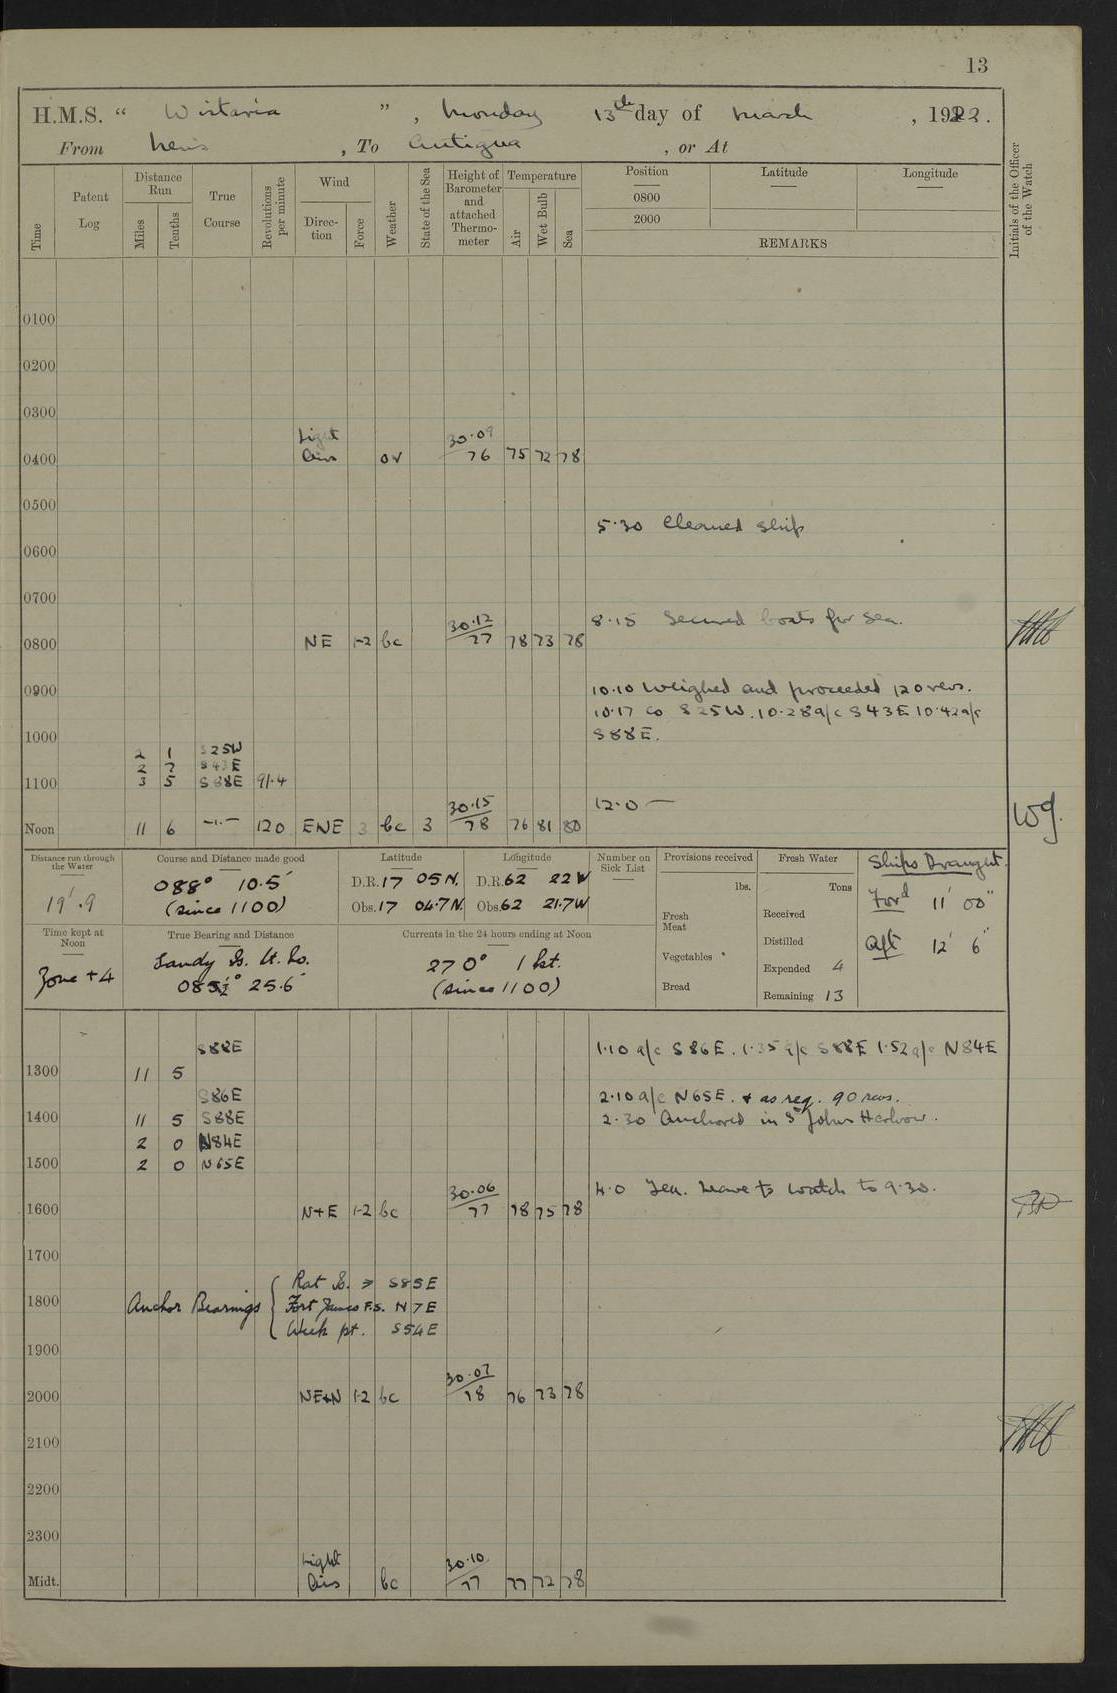 13
H.M.S. “ Wistaria ”, Monday 13th day of March, 1922.
From Nevis, To Antigua, or At
Time
Patent Log
Distance Run
Miles
Tenths
True Course
Revolutions per minute
Wind
Direction
Force
Weather
State of the Sea
Height of Barometer and attached Thermometer
Temperature
Air
Wet Bulb
Sea
Position Latitude Longitude
0800
2000
REMARKS
Initials of the Officer of the Watch
0100
0200
0300
Light 30.09
0400 Airs ov 76 75 72 78
0500
5.30 Cleaned ship
0600
0700
30.12 8.15 Secured boats for sea.
0800 NE 1-2 bc 77 78 73 78
0900 10.10 Weighed and proceeded 120 revs.
10.17 Co S25W. 10.28 a/c S43E 10.42 a/c
1000 S88E.
2 1 S25W
2 7 S43E
1100 3 5 S88E 91.4
30.15 12.0 —
Noon 11 6 -"- 120 ENE 3 bc 3 78 76 81 80
Distance run through the Water
19'.9
Course and Distance made good
088° 10.5'
(since 1100)
Latitude
D.R. 17 05 N.
Obs. 17 04.7 N.
Longitude
D.R. 62 22 W
Obs. 62 21.7 W
Number on Sick List
Provisions received
lbs.
Fresh Meat
Vegetables
Bread
Fresh Water
Tons
Received
Distilled
Expended 4
Remaining 13
Ships Draught.
Ford 11' 00"
Aft 12' 6"
Time kept at Noon
Zone +4
True Bearing and Distance
Sandy Is. Lt. Ho.
085½° 25.6'
Currents in the 24 hours ending at Noon
270° 1 kt.
(since 1100)
S88E 1.10 a/c S86E. 1.35 a/c S88E 1.52 a/c N84E
1300 11 5
S86E 2.10 a/c N65E. & as req. 90 revs.
1400 11 5 S88E 2.30 Anchored in St Johns Harbour.
2 0 N84E
1500 2 0 N65E
30.06 4.0 Gen. Leave to watch to 9.30.
1600 N+E 1-2 bc 77 78 75 78
1700
Rat Is. > S85E
1800 Anchor Bearings Fort James F.S. N7E
Week pt. S54E
1900
30.07
2000 NE+N 1-2 bc 78 76 73 78
2100
2200
2300
Light 30.10
Midt. Airs bc 77 77 72 78